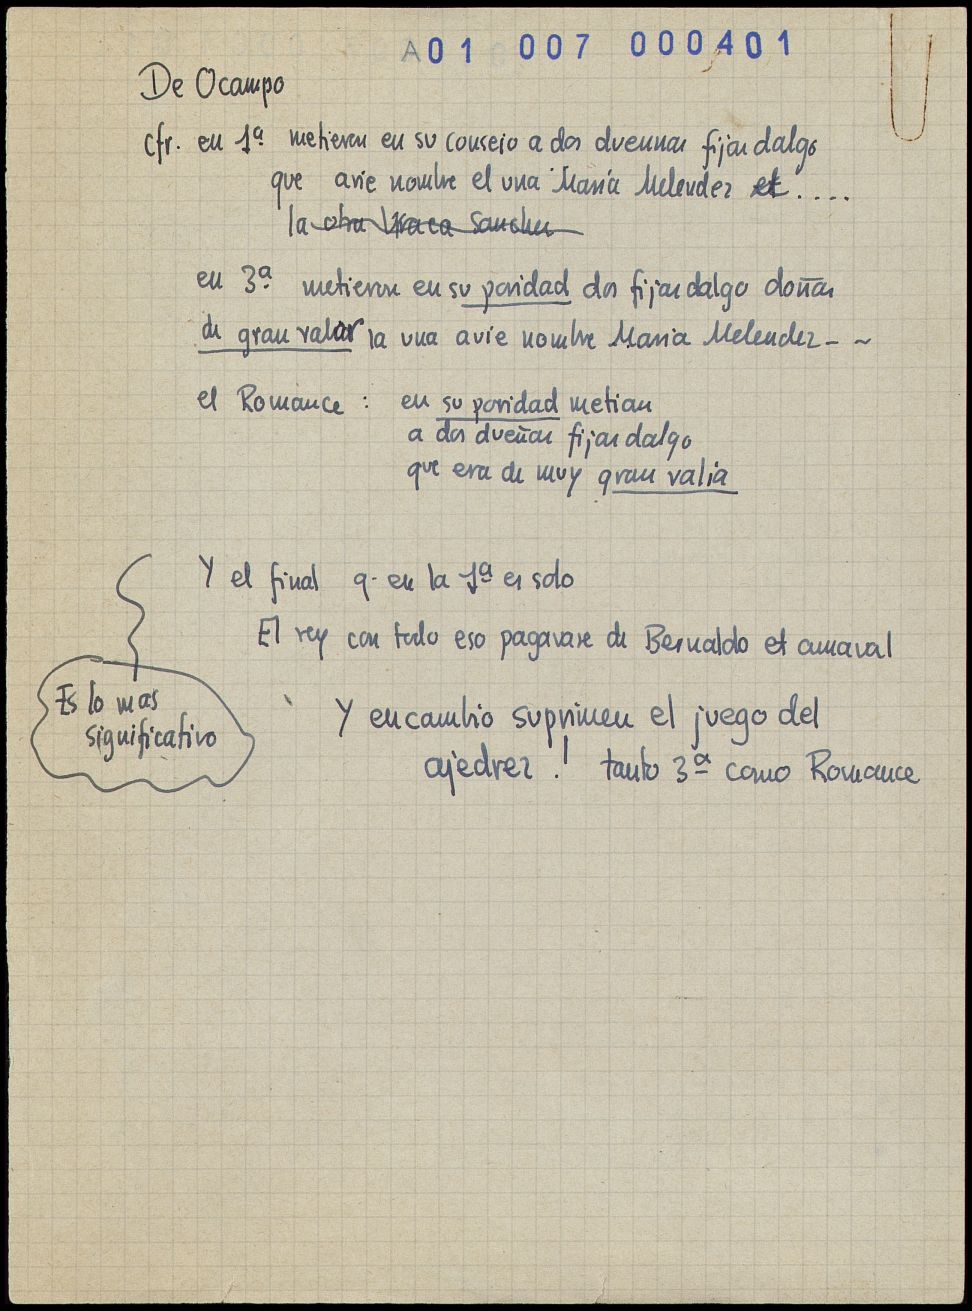 A01 007 000401
De Ocampo
cfr. en 1ª metieron en su consejo a dos duennas fijas dalgo
que avie nombre el una Maria Melendez et.....
la otra Uraca Sanchez
en 3ª metieron en su poridad dos fijas dalgo doñas
de gran valor la una avie nombre Maria Melendez - ~
el Romance : en su poridad metian
a dos dueñas fijas dalgo
que era de muy gran valia
Y el final q. en la 1ª es solo
El rey con todo eso pagavase de Bernaldo et amaval
Es lo mas
significativo
Y en cambio suprimen el juego del
ajedrez ! tanto 3ª como Romance